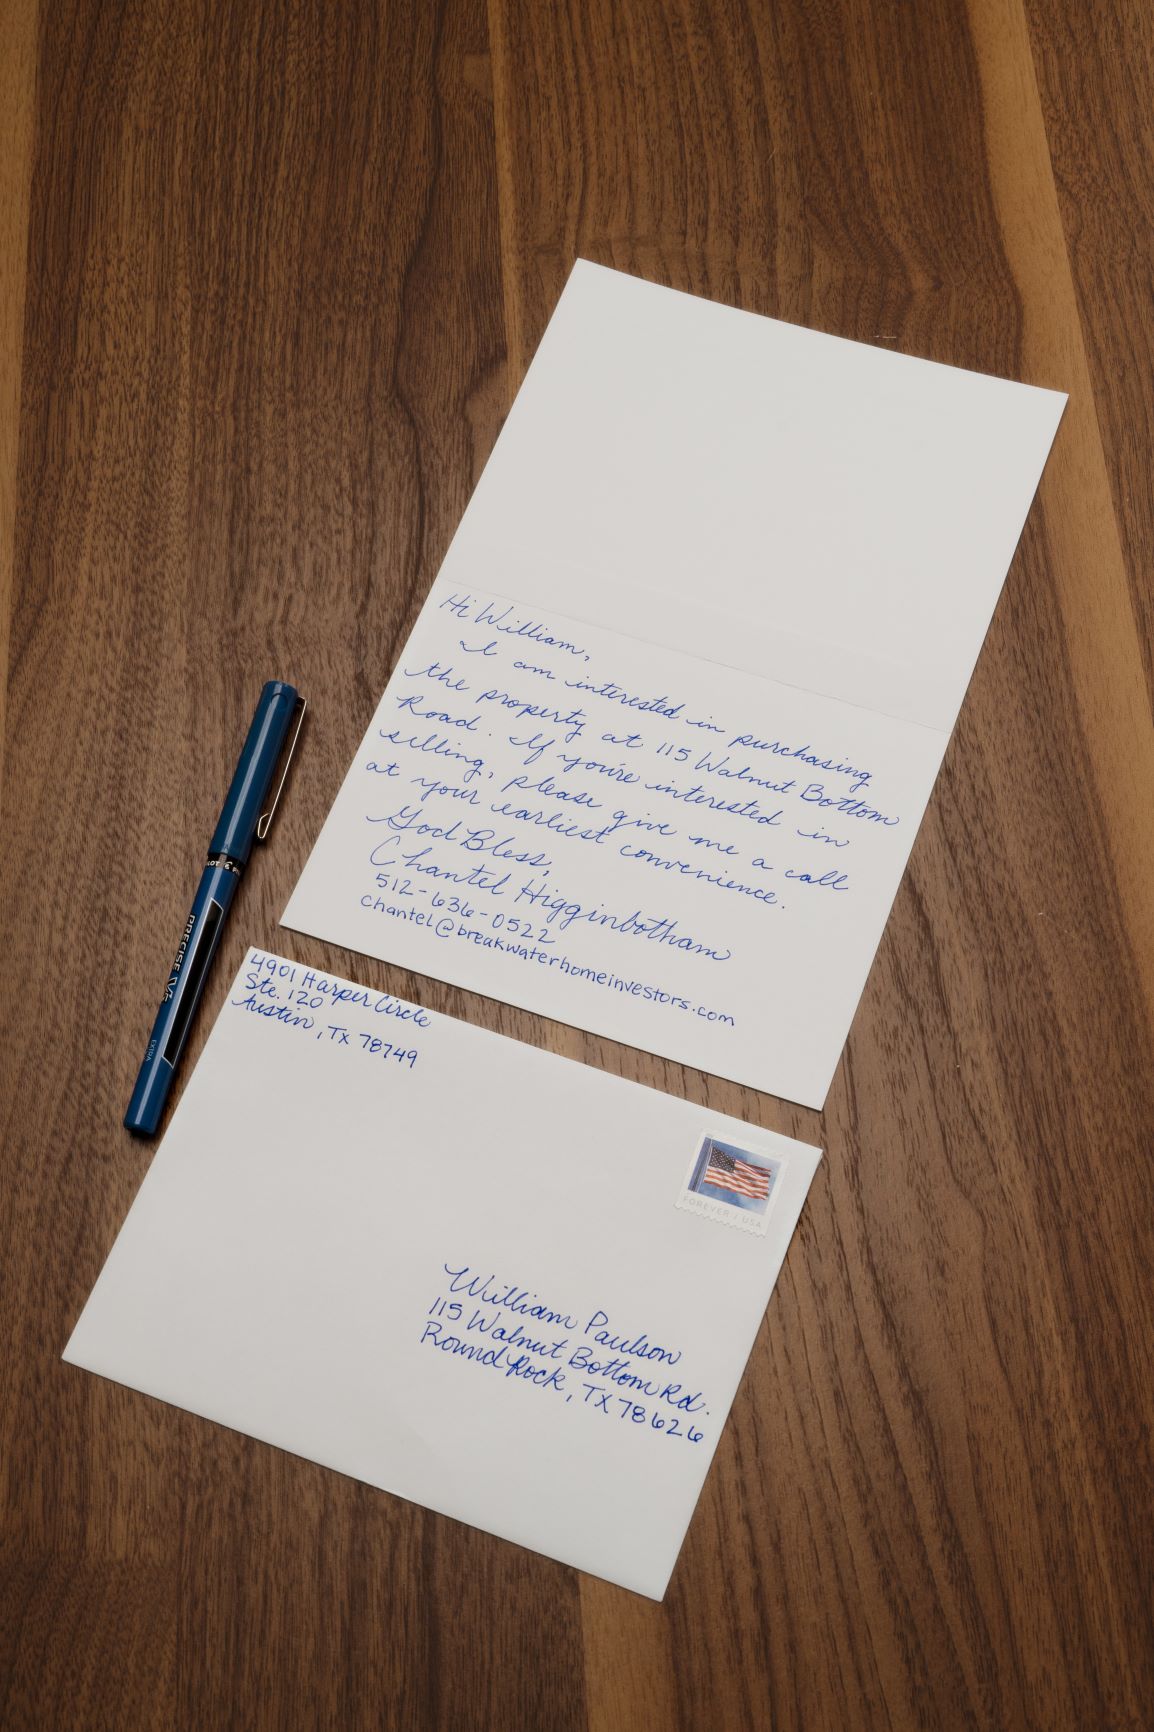 Hi William,
I am interested in purchasing
the property at 115 Walnut Bottom
Road. If you're interested in
selling, please give me a call
at your earliest convenience.
God Bless,
Chantel Higginbotham
512-636-0522
chantel@breakwaterhomeinvestors.com
PRECISE V5
EXTRA
4901 Harper Circle
Ste. 120
Austin, TX 78749
FOREVER / USA
William Paulson
115 Walnut Bottom Rd.
Round Rock, TX 78626